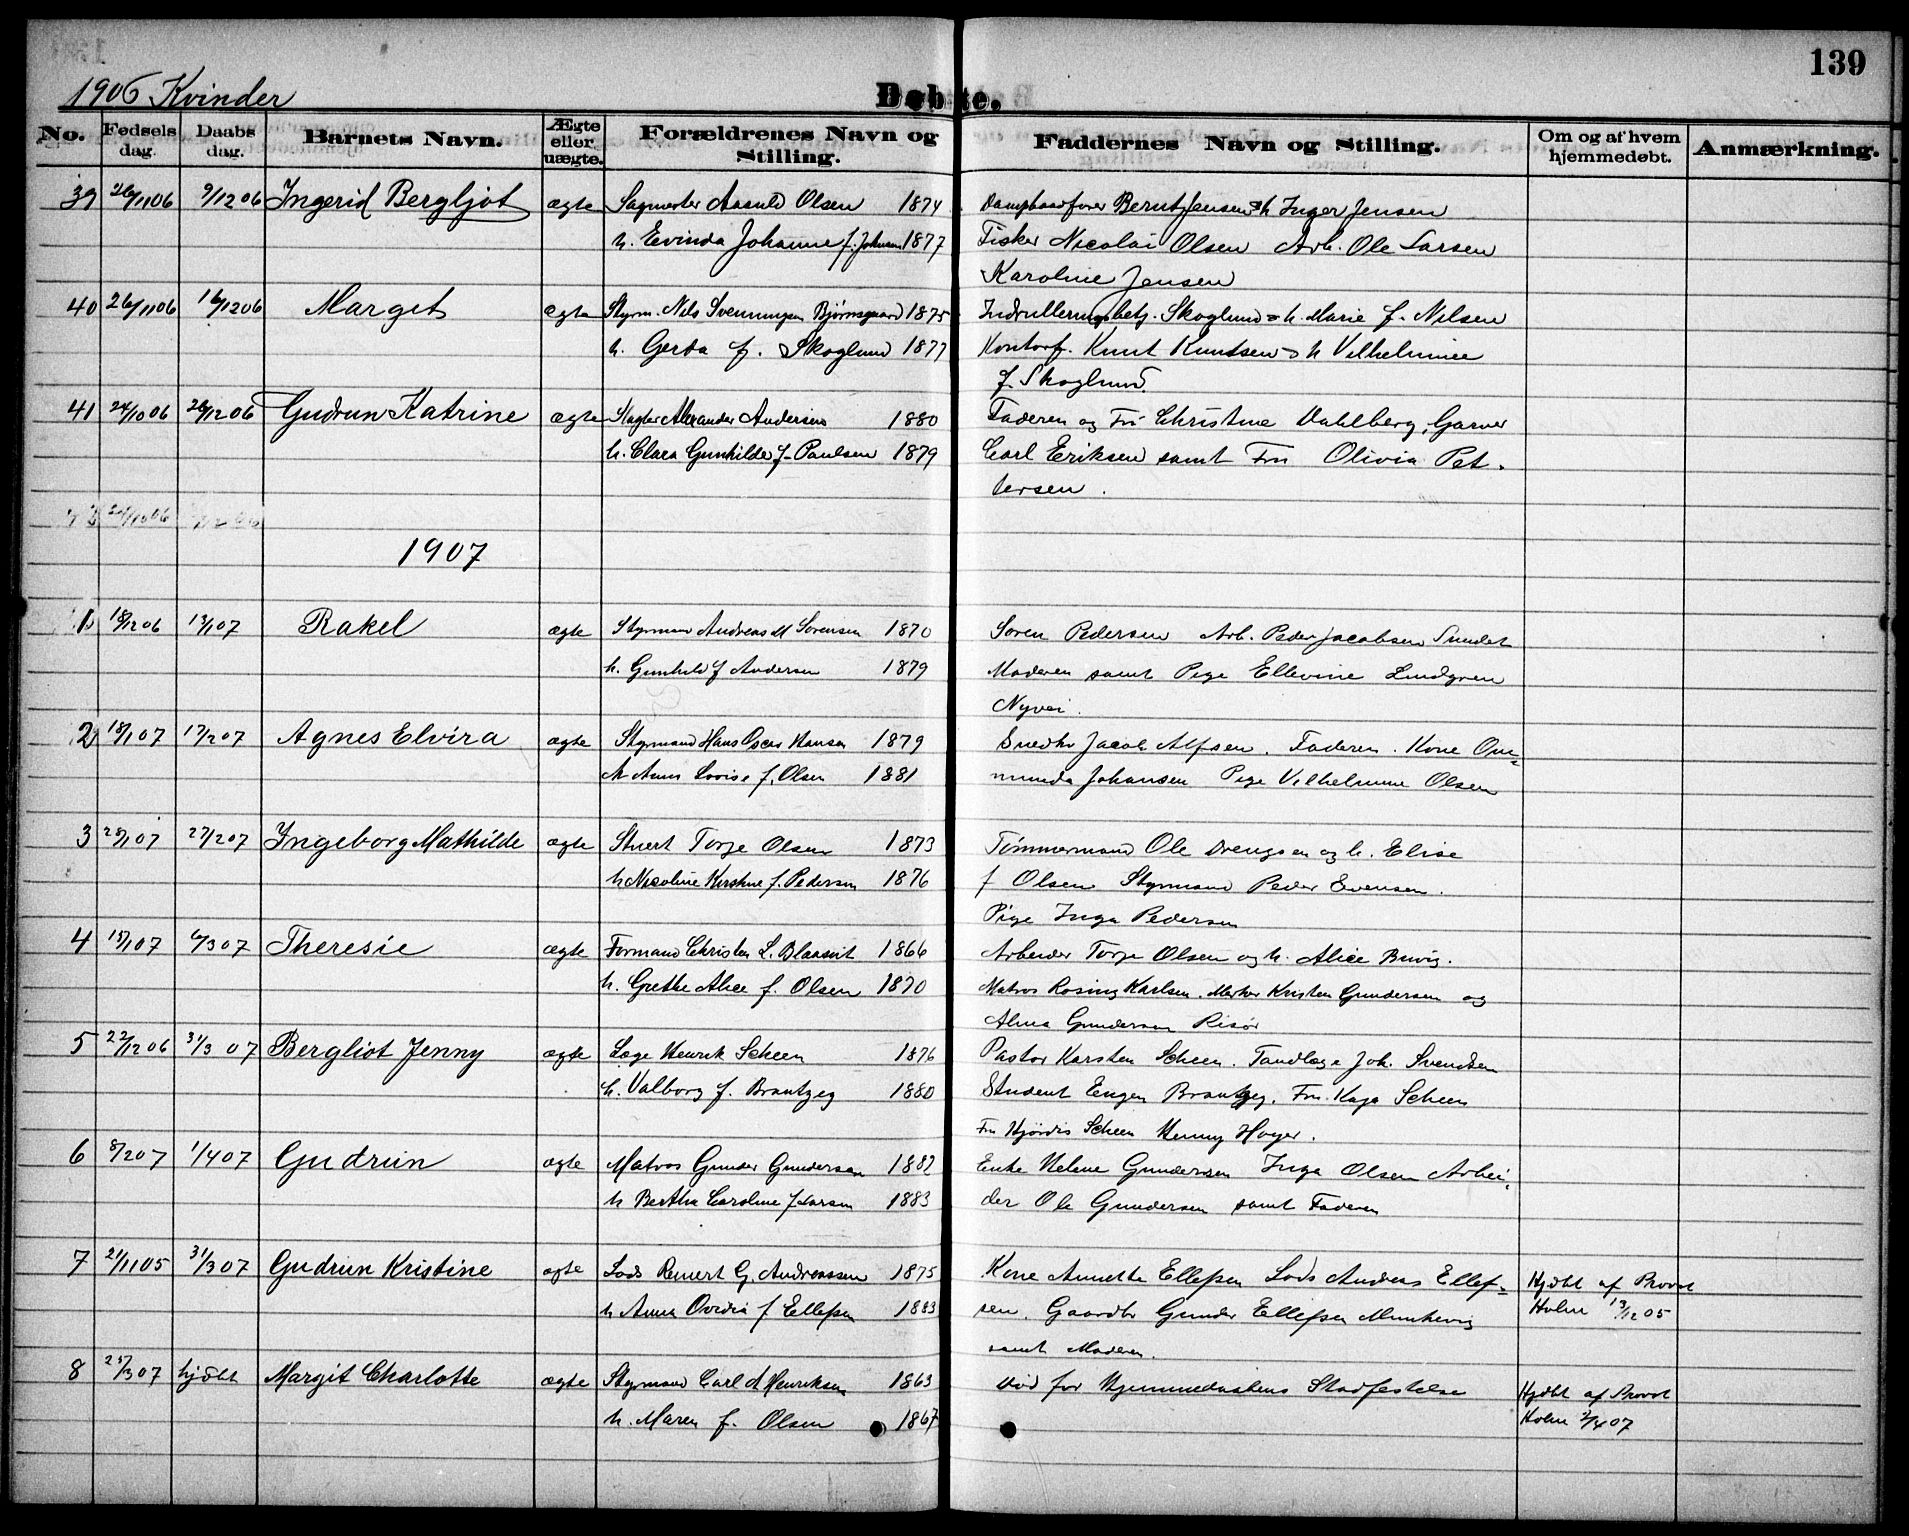 139
1906 Kvinder
Døbte.
No. Fødsels dag. Daabs dag. Barnets Navn. Ægte eller uægte. Forældrenes Navn og Stilling. Faddernes Navn og Stilling. Om og af hvem hjemmedøbt. Anmærkning.
39 26/11 06 9/12 06 Ingerid Bergljot ægte Sagmester Aanuld Olsen 1874 Dampbaadfører Bernt Jensen & h. Inger Jensen
h. Evinda Johanne f. Johnsen 1877 Fisker Nicolai Olsen Arb. Ole Larsen
Karoline Jensen
40 26/11 06 16/12 06 Margit ægte Styrm. Nils Svenningsen Bjørnsgaard 1875 Indrulleringsbetj. Skoglund & h. Marie f. Nilsen
h. Gerda f. Skoglund 1877 Kontorf. Knut Knutsen & h Vilhelmine
f. Skoglund.
41 24/10 06 26/12 06 Gudrun Katrine ægte Slagter Alexander Andersen 1880 Faderen og Fru Christine Dahlberg, Garver
h. Clara Gunhilde f. Paulsen 1879 Carl Eriksen samt Fru Olivia Pet-
tersen.
1907
1 18/12 06 13/1 07 Rakel ægte Styrmand Andreas M Sørensen 1870 Søren Pedersen Arb. Peder Jacobsen Sundet
h. Gunhild f Andersen 1879 Moderen samt Pige Ellevine Lindgren
Nyvei.
2 18/1 07 17/2 07 Agnes Elvira ægte Styrmand Hans Oscar Hansen 1879 Snedker Jacob Alfsen. Faderen. Kone Om-
h Anna Lovise f. Olsen 1881 munda Johansen Pige Vilhelmine Olsen
3 28/1 07 27/2 07 Ingeborg Mathilde ægte Stuert Torje Olsen 1873 Tømmermand Ole Drengsen og h. Elise
h Nicoline Kirstine f. Pedersen 1876 f Olsen Styrmand Peder Evensen.
Pige Inga Pedersen
4 15/1 07 6/3 07 Theresie ægte Formand Christen L. Blaasvit 1866 Arbeider Torje Olsen og h. Alice Buvig.
h. Grethe Alice f. Olsen 1870 Matros Rosing Karlsen. Kristen Gundersen og
Alma Gundersen Risør
5 22/12 06 31/3 07 Bergliot Jenny ægte Læge Henrik Scheen 1876 Pastor Karsten Scheen. Tandlæge Joh. Svendsen
h. Valborg f. Brantzeg 1880 Student Eugen Brantzeg. Fru. Kaja Scheen
Frk Hjørdis Scheen Henny Høyer.
6 8/2 07 1/4 07 Gudrun ægte Matros Gunder Gundersen 1882 Enke Helene Gundersen Inga Olsen Arbei-
h Bertha Caroline f Larsen 1883 der Ole Gundersen samt Faderen
7 21/11 05 31/3 07 Gudrun Kristine ægte Lods Reinert G. Andreassen 1875 Kone Annette Ellefsen Lods Andreas Ellef-
h Anna Ovidia f Ellefsen 1883 sen. Gaardbr Gunder Ellefsen Munkevig
samt Moderen.
Hjdbt af Provst
Holm 13/12 05
8 25/3 07 hjdbt Margit Charlotte ægte Styrmand Carl A Henriksen 1863 død før Hjemmedaabens Stadfestelse
h. Maren f. Olsen 1867
Hjdbt af Provst
Holm 2/4 07